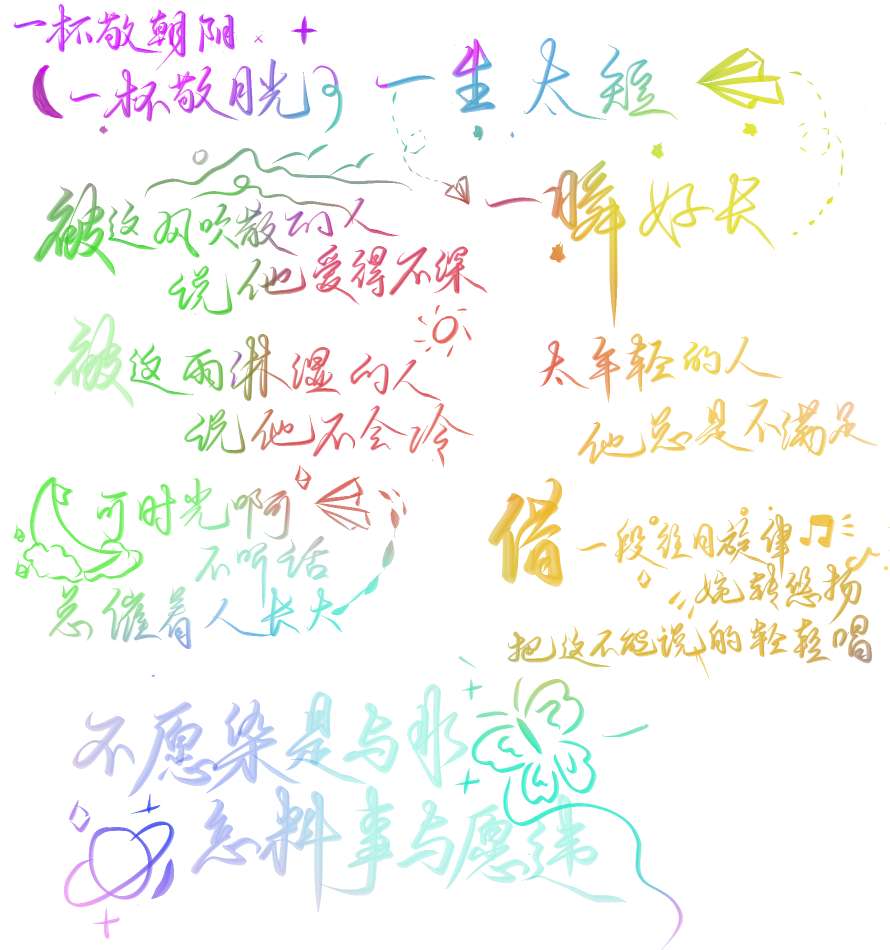 一杯敬朝阳
一杯敬月光
一生太短
一瞬好长
被这风吹散的人
说他爱得不深
被这雨淋湿的人
说他不会冷
太年轻的人
他总是不满足
可时光啊
不听话
总催着人长大
借一段往日旋律
婉转悠扬
把这不能说的轻轻唱
不愿染是与非
怎料事与愿违